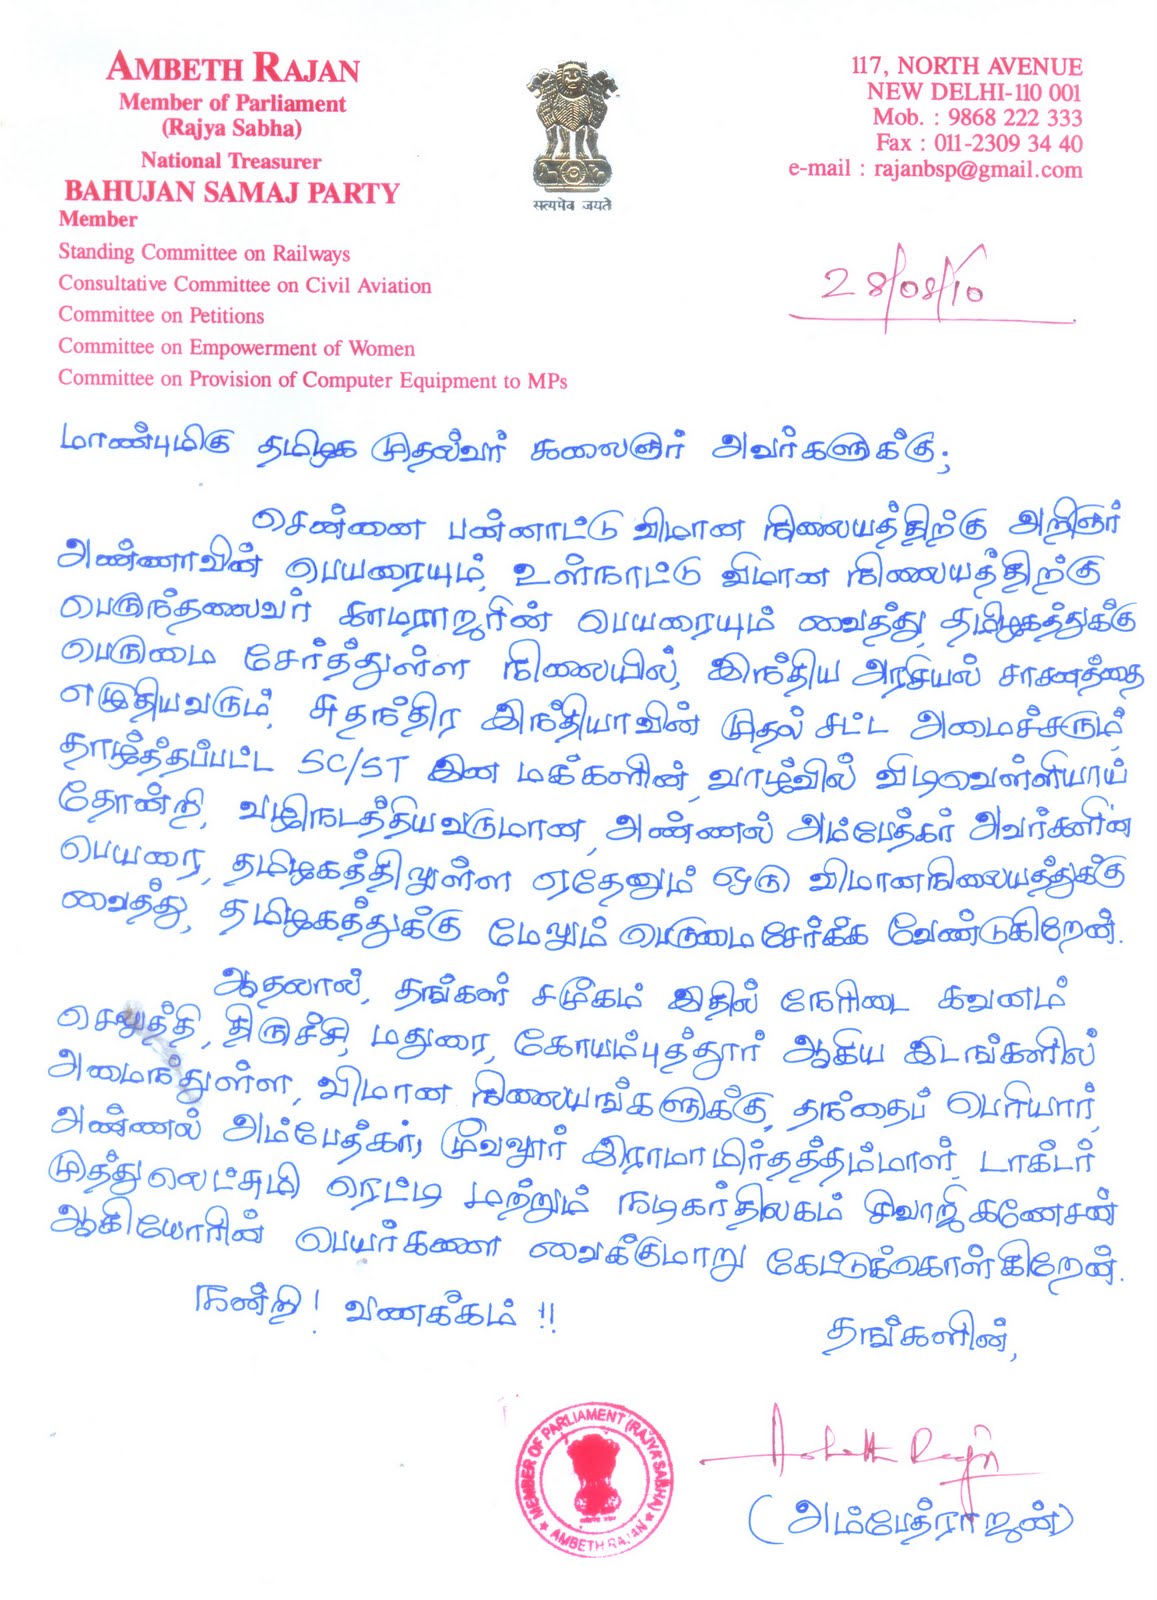 AMBETH RAJAN
Member of Parliament
(Rajya Sabha)
National Treasurer
BAHUJAN SAMAJ PARTY
Member
Standing Committee on Railways
Consultative Committee on Civil Aviation
Committee on Petitions
Committee on Empowerment of Women
Committee on Provision of Computer Equipment to MPs
सत्यमेव जयते
117, NORTH AVENUE
NEW DELHI-110 001
Mob. : 9868 222 333
Fax : 011-2309 34 40
e-mail : rajanbsp@gmail.com
28/08/10
மாண்புமிகு தமிழக முதல்வர் கலைஞர் அவர்களுக்கு;
சென்னை பன்னாட்டு விமான நிலையத்திற்கு அறிஞர்
அண்ணாவின் பெயரையும், உள்நாட்டு விமான நிலையத்திற்கு
பெருந்தலைவர் காமராஜரின் பெயரையும் வைத்து, தமிழகத்துக்கு
பெருமை சேர்த்துள்ள நிலையில், இந்திய அரசியல் சாசனத்தை
எழுதியவரும், சுதந்திர இந்தியாவின் முதல் சட்ட அமைச்சரும்,
தாழ்த்தப்பட்ட SC/ST இன மக்களின், வாழ்வில் விடிவெள்ளியாய்
தோன்றி, வழிநடத்தியவருமான, அண்ணல் அம்பேத்கர் அவர்களின்
பெயரை, தமிழகத்திலுள்ள ஏதேனும் ஒரு விமானநிலையத்துக்கு
வைத்து, தமிழகத்துக்கு மேலும் பெருமைசேர்க்க வேண்டுகிறேன்.
ஆதலால், தங்கள் சமூகம் இதில் நேரிடை கவனம்
செலுத்தி, திருச்சி, மதுரை, கோயம்புத்தூர் ஆகிய இடங்களில்
அமைந்துள்ள, விமான நிலையங்களுக்கு, தந்தைப் பெரியார்,
அண்ணல் அம்பேத்கர், மூவலூர் இராமாமிர்தத்தம்மாள், டாக்டர்
முத்துலெட்சுமி ரெட்டி மற்றும் நடிகர்திலகம் சிவாஜி கணேசன்
ஆகியோரின் பெயர்களை வைக்குமாறு கேட்டுக்கொள்கிறேன்.
நன்றி! வணக்கம் !!
தங்களின்,
Ambeth Rajan
(அம்பேத்ராஜன்)
MEMBER OF PARLIAMENT (RAJYA SABHA)
★ AMBETH RAJAN ★